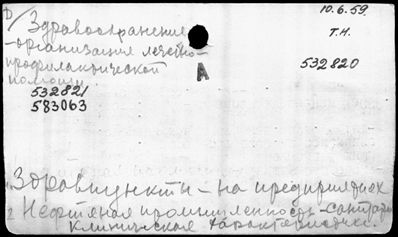 10.6.59.
Здравоохранение
Т.Н.
-организация лечебно-
профилактической
помощи
532820
А
532821
583063
1. Здравпункты – на предприятиях
2 Нефтяная промышленность – санитарно
клиническая характеристика.